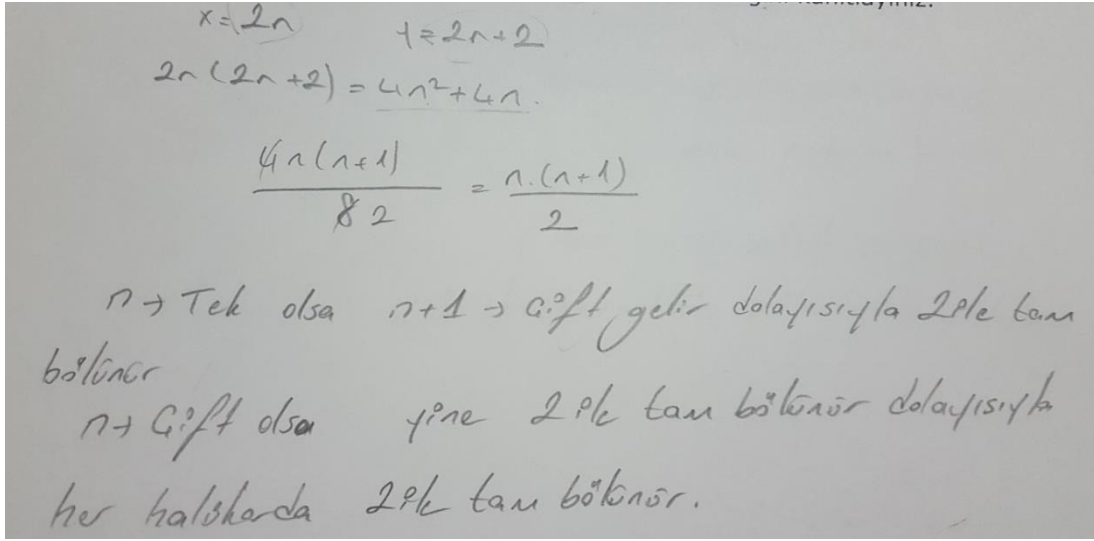 x=2n y=2n+2
2n(2n+2) = 4n²+4n.
4n(n+1) / 8 2 = n.(n+1) / 2
n→ Tek olsa n+1 → Çift gelir dolayısıyla 2 ile tam
bölünür
n→ Çift olsa yine 2 ile tam bölünür dolayısıyla
her halükarda 2 ile tam bölünür.